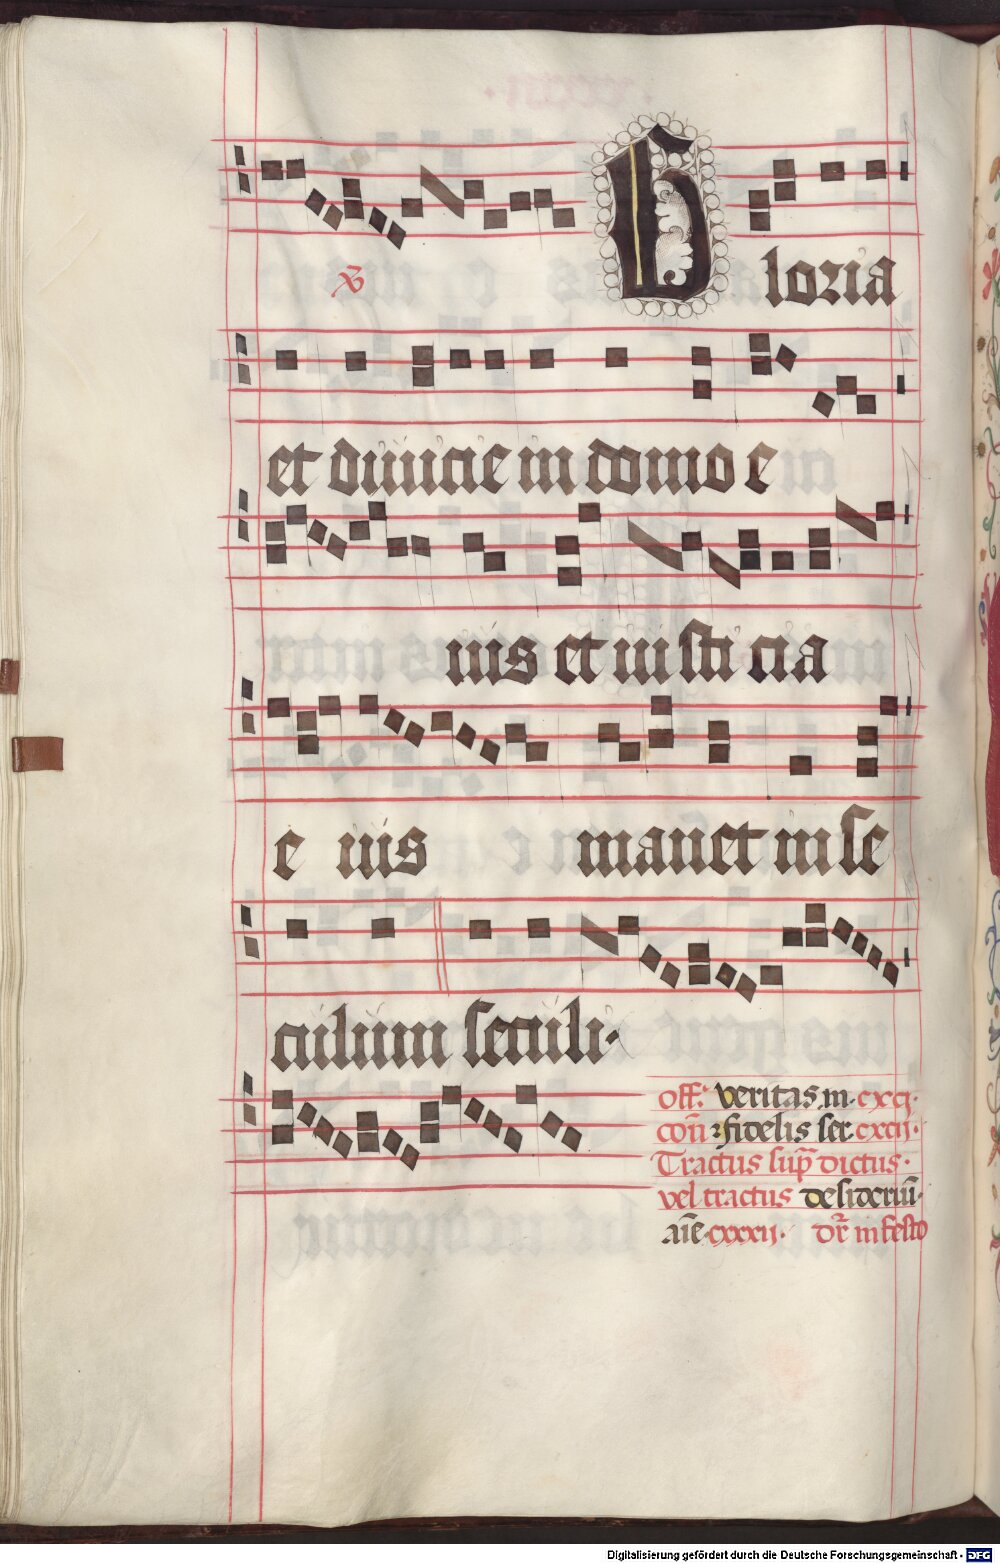 ℣ Gloria
et diuicie in domo e
ius et iusticia
e ius manet in se
culum seculi·
off. veritas m· cxcj·
cōn ꝛ fidelis ser. cxcij·
Tractus sup̄ dictus·
vel tractus desideriū·
aīe· cxxxij· dr̄ in festo
Digitalisierung gefördert durch die Deutsche Forschungsgemeinschaft - DFG